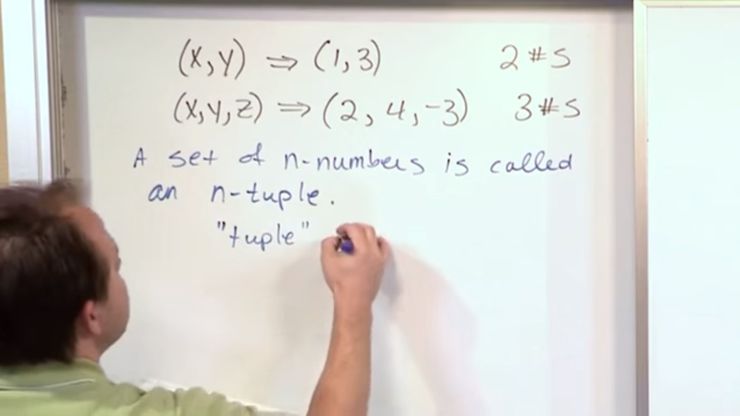 (x,y) ⇒ (1,3) 2 #s
(x,y,z) ⇒ (2, 4, -3) 3 #s
A set of n-numbers is called
an n-tuple.
"tuple"